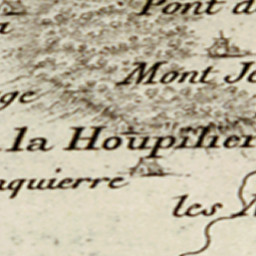 Pont d
Mont Je
ge
la Houpilier
nquierre
les